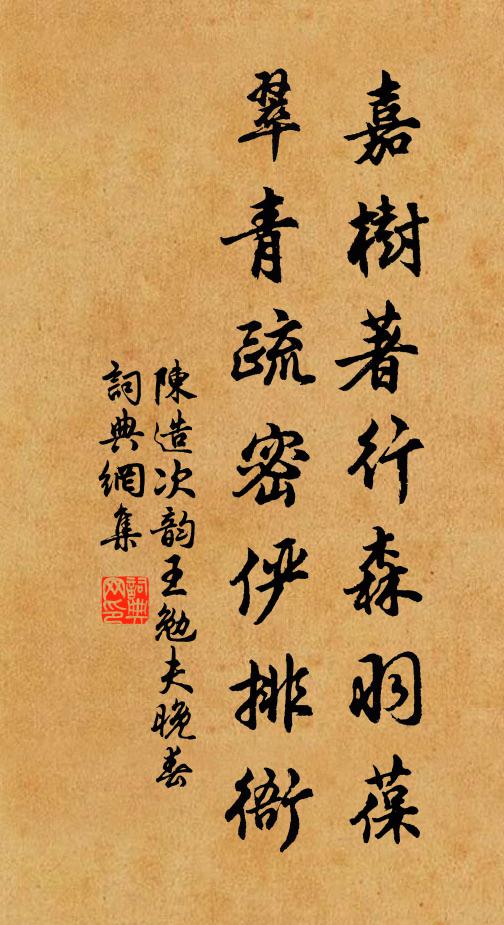 嘉樹著行森羽葆
翠青疏密儼排衙
陳造次韵王勉夫晚春
詞典網集
詞典网印